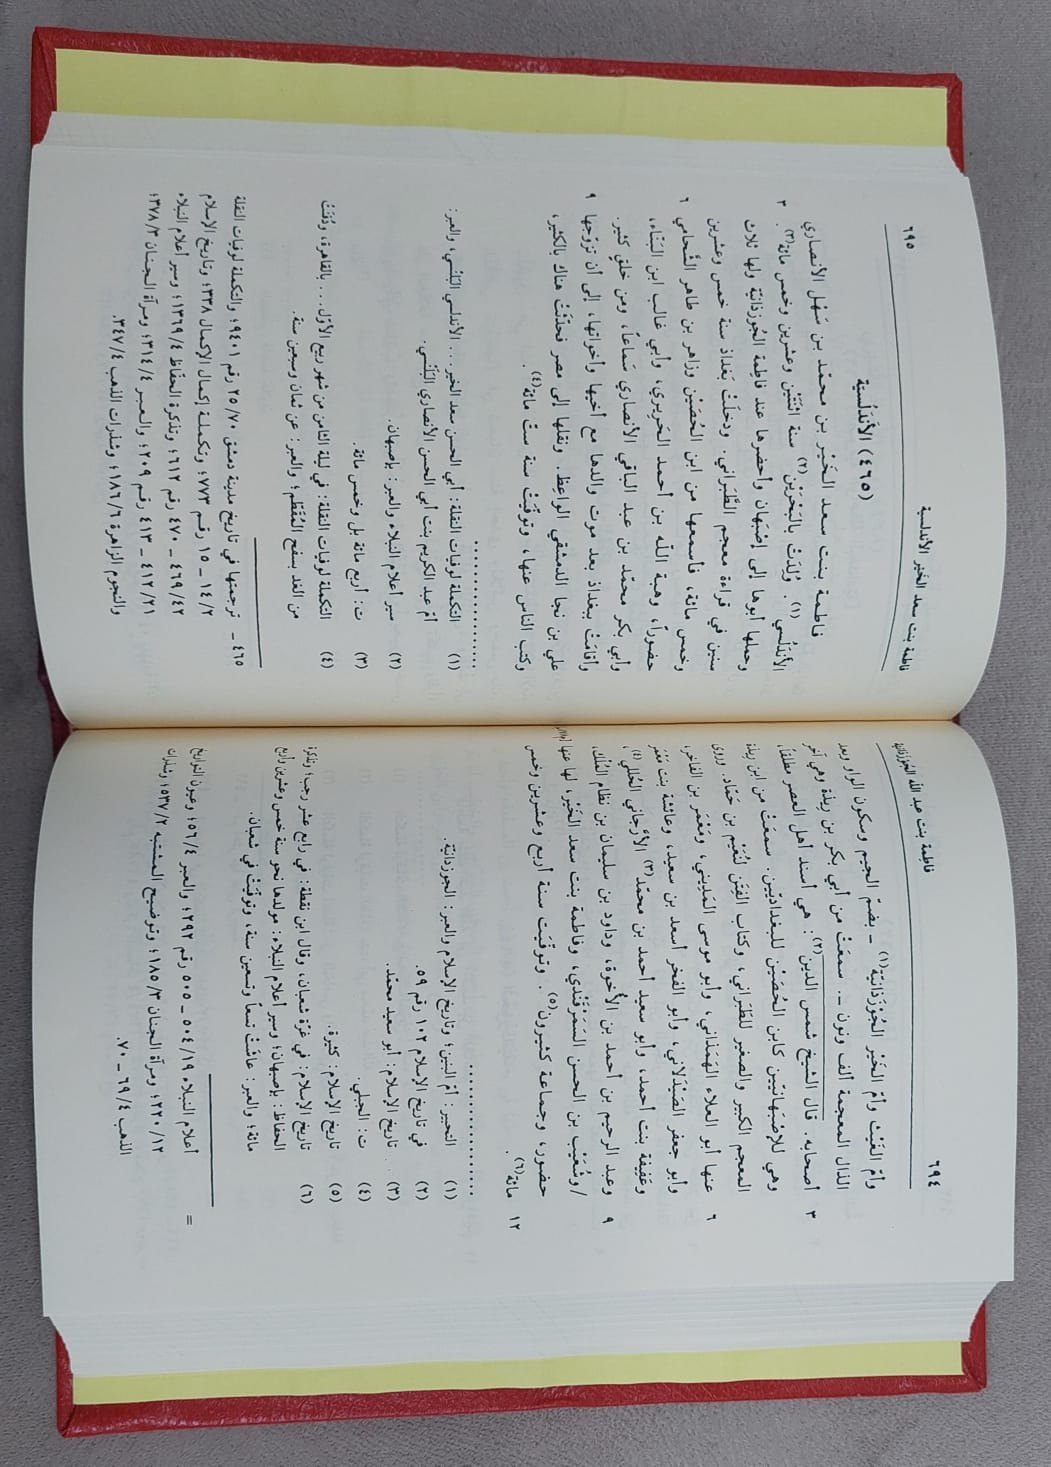 ٦٩٤
فاطمة بنت عبد الله الجُوزذانيّة
وأمّ الغَيْث وأمّ الخَيْر الجُوزْذَانيّة(١) ـ بضمّ الجيم وسكون الواو وبعد
الذال المعجمة ألف ونون ـ. سمعَتْ من أبي بكر بن ريذة وهي آخر
٣ أصحابه. قال الشيخ شمس الدين(٢): هي أسند أهل العصر مطلقاً،
وهي للإصْبَهانيّين كابن الحُصَيْن للبغداديّين. سمعَتْ من ابن ريذة
المعجم الكبير والصغير للطَّبَراني، وكتاب الفِتَن لنُعَيْم بن حمّاد. وروى
٦ عنها أبو العلاء الهَمَداني، وأبو موسى المَديني، ومَعْمَر بن الفاخر،
وأبو جعفر الصَّيْدَلاني، وأبو الفخر أسعد بن سعيد، وعائشة بنت مَعْمَر
وعَفيفة بنت أحمد، وأبو سعيد أحمد بن محمّد(٣) الأرَّجاني الحُلَلي(٤)،
٩ وعبد الرحيم بن أحمد بن الأُخوة، وداود بن سليمان بن نظام المُلْك،
/وشُعَيْب بن الحسن السَمَرْقَنْدي، وفاطمة بنت سعد الخَيْر، لها عنها
حضور، وجماعة كثيرون(٥). وتوفّيَت سنة أربع وعشرين وخمس
١٢ مائة(٦).
(١) التحبير: أمّ البنين؛ وتاريخ الإسلام والعبر: الجوزدانيّة.
(٢) في تاريخ الإسلام ١٠٢ رقم ٥٩.
(٣) تاريخ الإسلام: أبو سعيد محمّد.
(٤) ت: الجبلي.
(٥) تاريخ الإسلام: كثيرة.
(٦) تاريخ الإسلام: في غرّة شعبان، وقال ابن نقطة: في رابع عشر رجب؛ وتذكرة
الحفاظ: بإصبهان؛ وسير أعلام النبلاء: مولدها نحو سنة خمس وعشرين وأربع
مائة؛ والعبر: عاشَتْ تسعاً وتسعين سنة، وتوفّيَتْ في شعبان.
= أعلام النبلاء ٥٠٤/١٩ ـ ٥٠٥ رقم ٢٩٢؛ والعبر ٥٦/٤؛ وعيون التواريخ
٢٢٠/١٢؛ ومرآة الجنان ١٨٥/٣؛ وتوضيح المشتبه ٥٣٧/٢؛ وشذرات
الذهب ٦٩/٤ ـ ٧٠.
فاطمة بنت سعد الخَير الأندلسية
٦٩٥
(٤٦٥) الأَنْدَلُسية
فاطمة بنت سعد الخَيْر بن محمّد بن سَهْل الأنصاري
الأَنْدَلُسي(١). وُلدَتْ بالبَحْرَيْن(٢) سنة اثْنَتَيْن وعشرين وخمس مائة(٣). ٣
وحملها أبوها إلى إصْبَهان وأحضرها عند فاطمة الجُوزذانيّة ولها ثلاث
سنين في قراءة معجم الطَّبَراني. ودخلَتْ بَغداذ سنة خمس وعشرين
وخمس مائة، فأسمعها من ابن الحُصَيْن وزاهر بن طاهر الشَّحامي ٦
حضوراً، وهبة الله بن أحمد الحَريري، وأبي غالب ابن البَنّاء،
وأبي بكر محمّد بن عبد الباقي الأنصاري سَماعاً، ومن خلقٍ كثير.
وأقامَتْ ببغداذ بعد موت والدها مع أخيها وأخواتها، إلى أن تزوّجها ٩
علي بن نجا الدمشقي الواعِظ. ونقلها إلى مصر فحدّثَتْ هناك بالكثير،
وكتب الناس عنها، وتوفّيَتْ سنة ستّ مائة(٤).
(١) التكملة لوفيات النقلة: أبي الحسن سعد الخير... الأندلسي البَلَنْسي، والعبر:
أمّ عبد الكريم بنت أبي الحسن الأنصاري البَلَنْسي.
(٢) سير أعلام النبلاء والعبر: بإصبهان.
(٣) ت: أربع مائة بل وخمس مائة.
(٤) التكملة لوفيات النقلة: في ليلة الثامن من شهر ربيع الأوّل... بالقاهرة، ودُفنَتْ
من الغد بسفح المُقَطَّم؛ والعبر: عن ثمان وسبعين سنة.
٤٦٥ ـ ترجمتها في تاريخ مدينة دمشق ٢٥/٧٠ رقم ٩٤٠١؛ والتكملة لوفيات النقلة
١٤/٢ ـ ١٥ رقم ٧٧٣؛ وتكملة إكمال الإكمال ٣٣٨؛ وتاريخ الإسلام
٤٦٩/٤٢ ـ ٤٧٠ رقم ٦١٢؛ وتذكرة الحفّاظ ١٣٦٩/٤؛ وسير أعلام النبلاء
٤١٢/٢١ ـ ٤١٣ رقم ٢٠٩؛ والعبر ٣١٤/٤؛ ومرآة الجنان ٣٧٨/٣؛
والنجوم الزاهرة ١٨٦/٦؛ وشذرات الذهب ٣٤٧/٤.